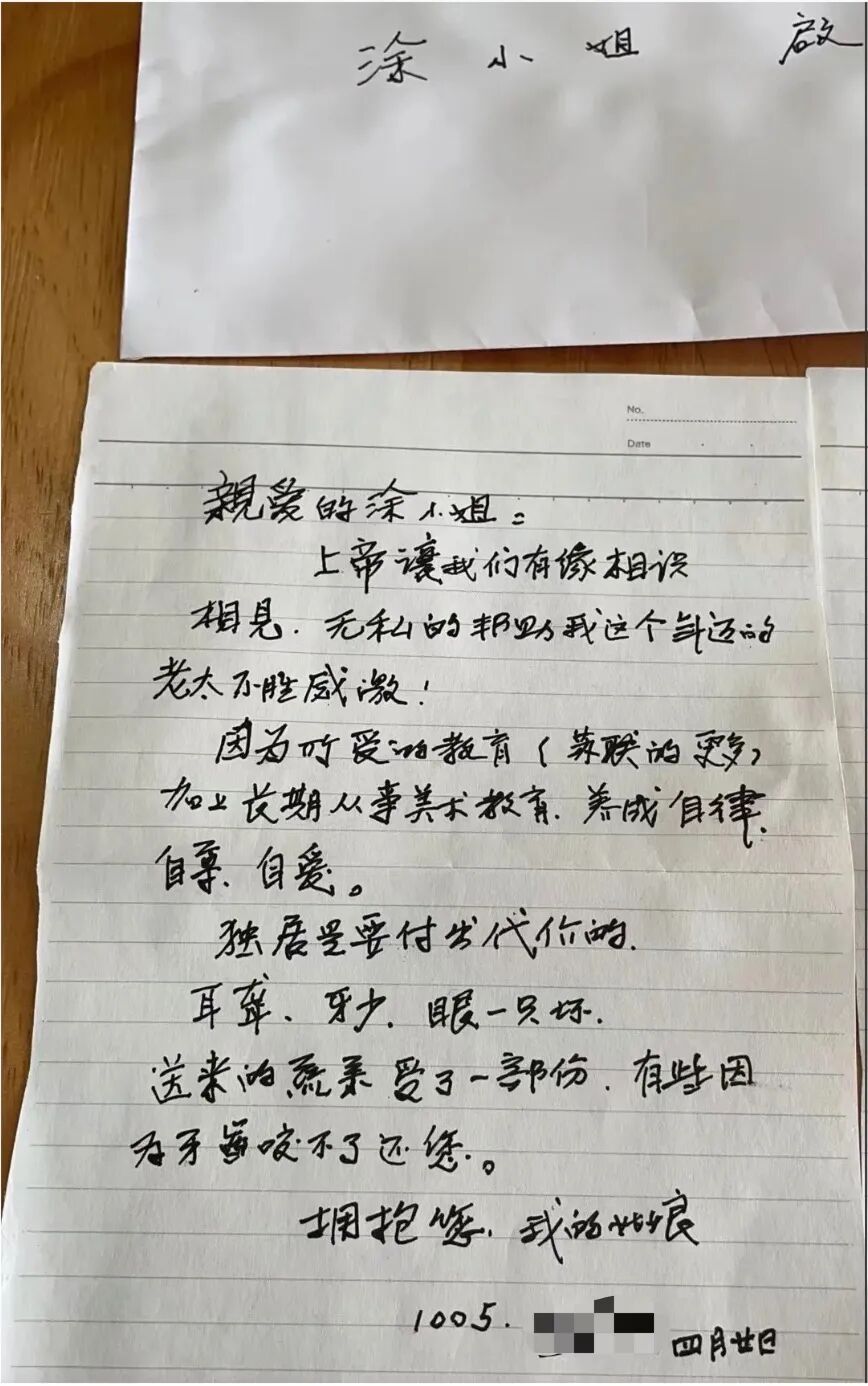 涂小姐 啟
No.
Date
親爱的涂小姐：
上帝讓我们有缘相识
相見．无私的帮助我这个年迈的
老太不胜感激！
因为所受的教育（苏联的更多）
加上长期从事美术教育．养成自律、
自尊、自爱。
独居是要付出代价的．
耳聋、牙少．眼一只坏．
送来的蔬菜受了一部份．有些因
为牙齒咬不了还您。
拥抱您．我的姑娘
1005．
四月廿日